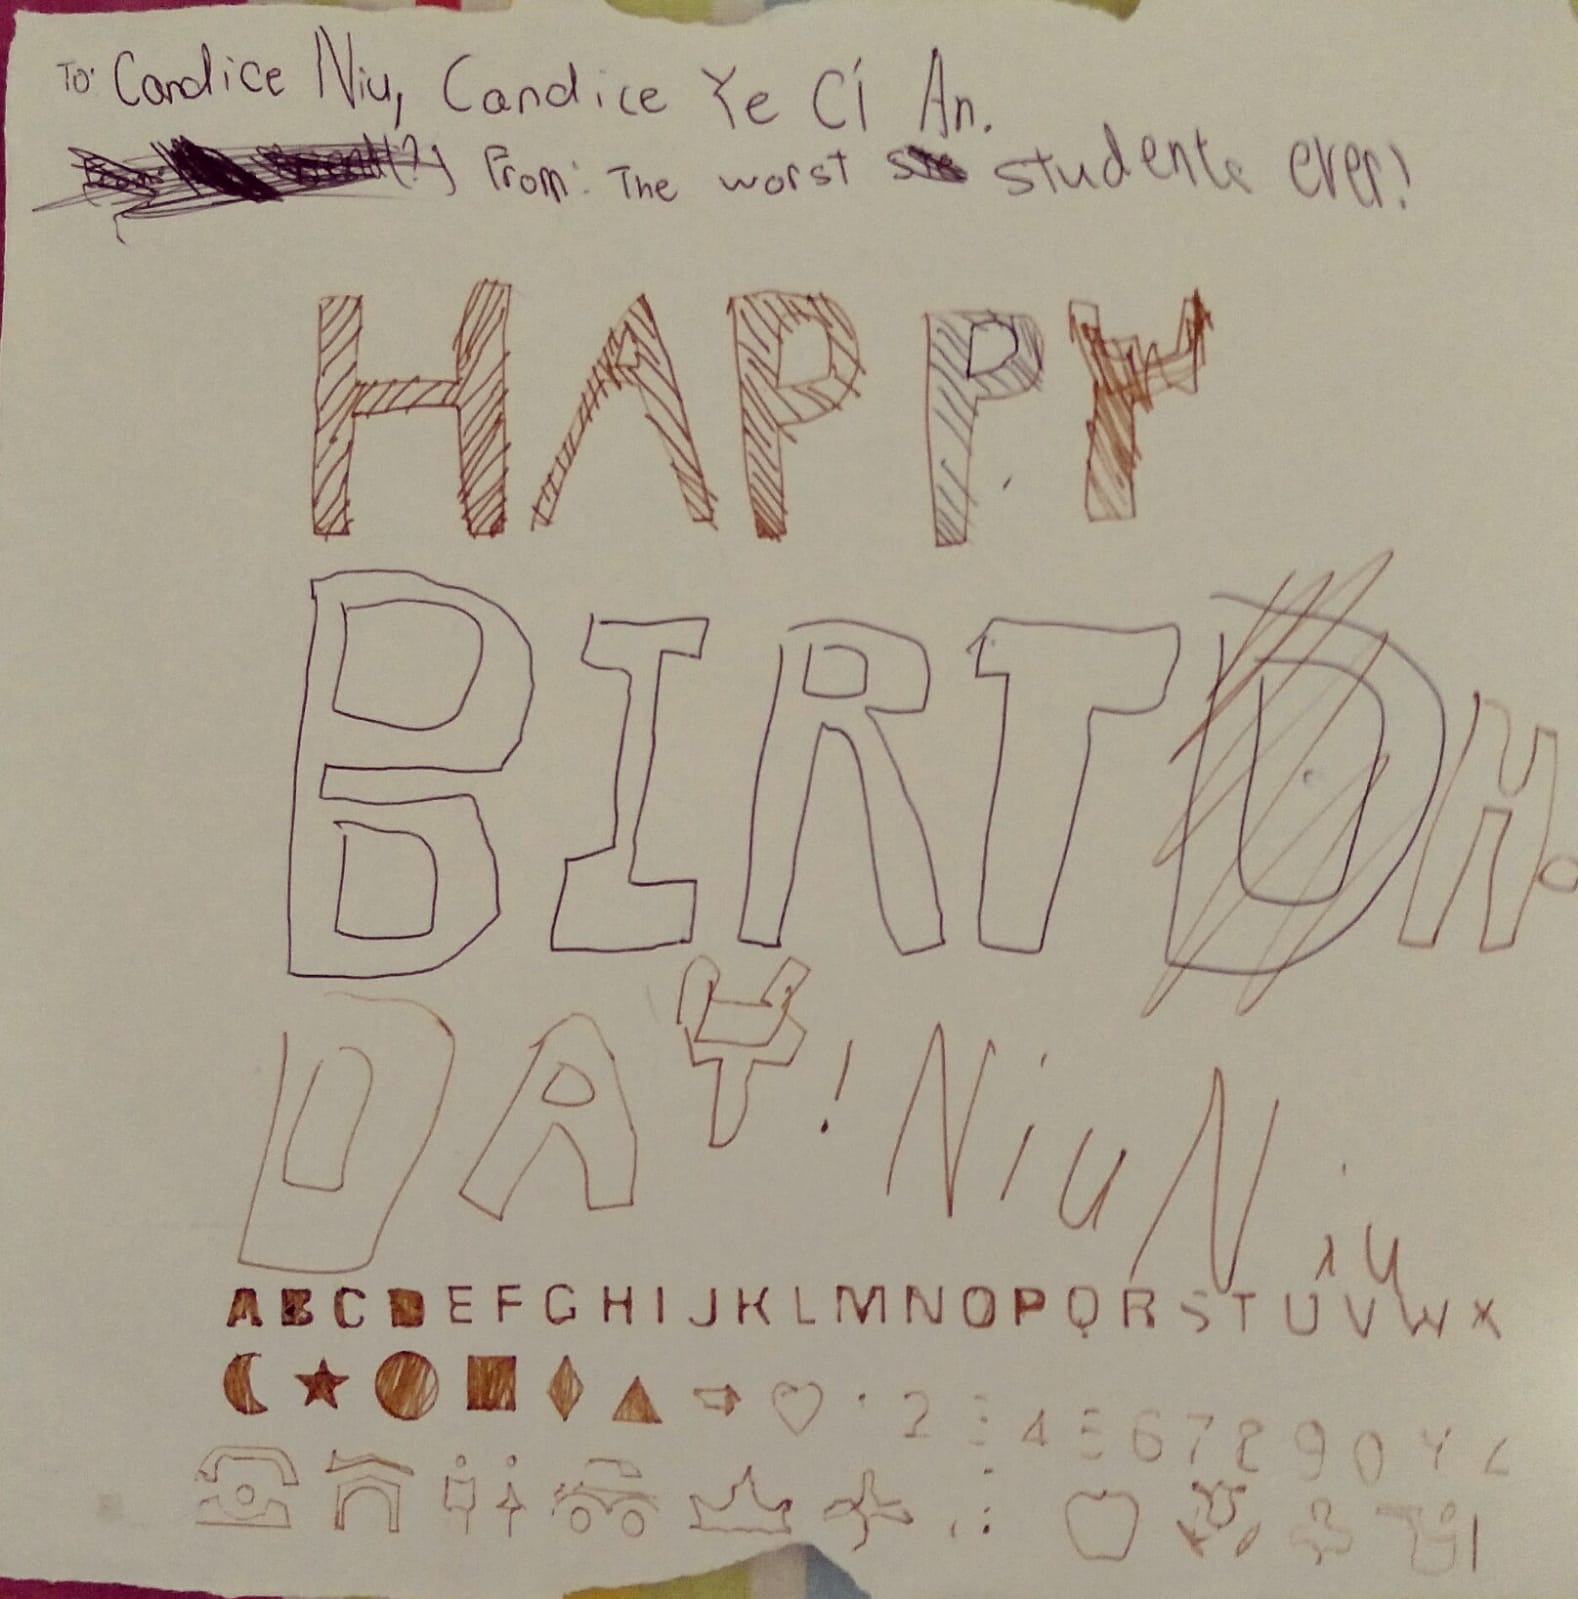 To: Candice Niu, Candice Ye Cí An.
(?) From: The worst students ever!
HAPPY
BIRTH
DAY! Niu Niu
ABCDEFGHIJKLMNOPQRSTUVWX
2 3 4 5 6 7 8 9 0 Y Z